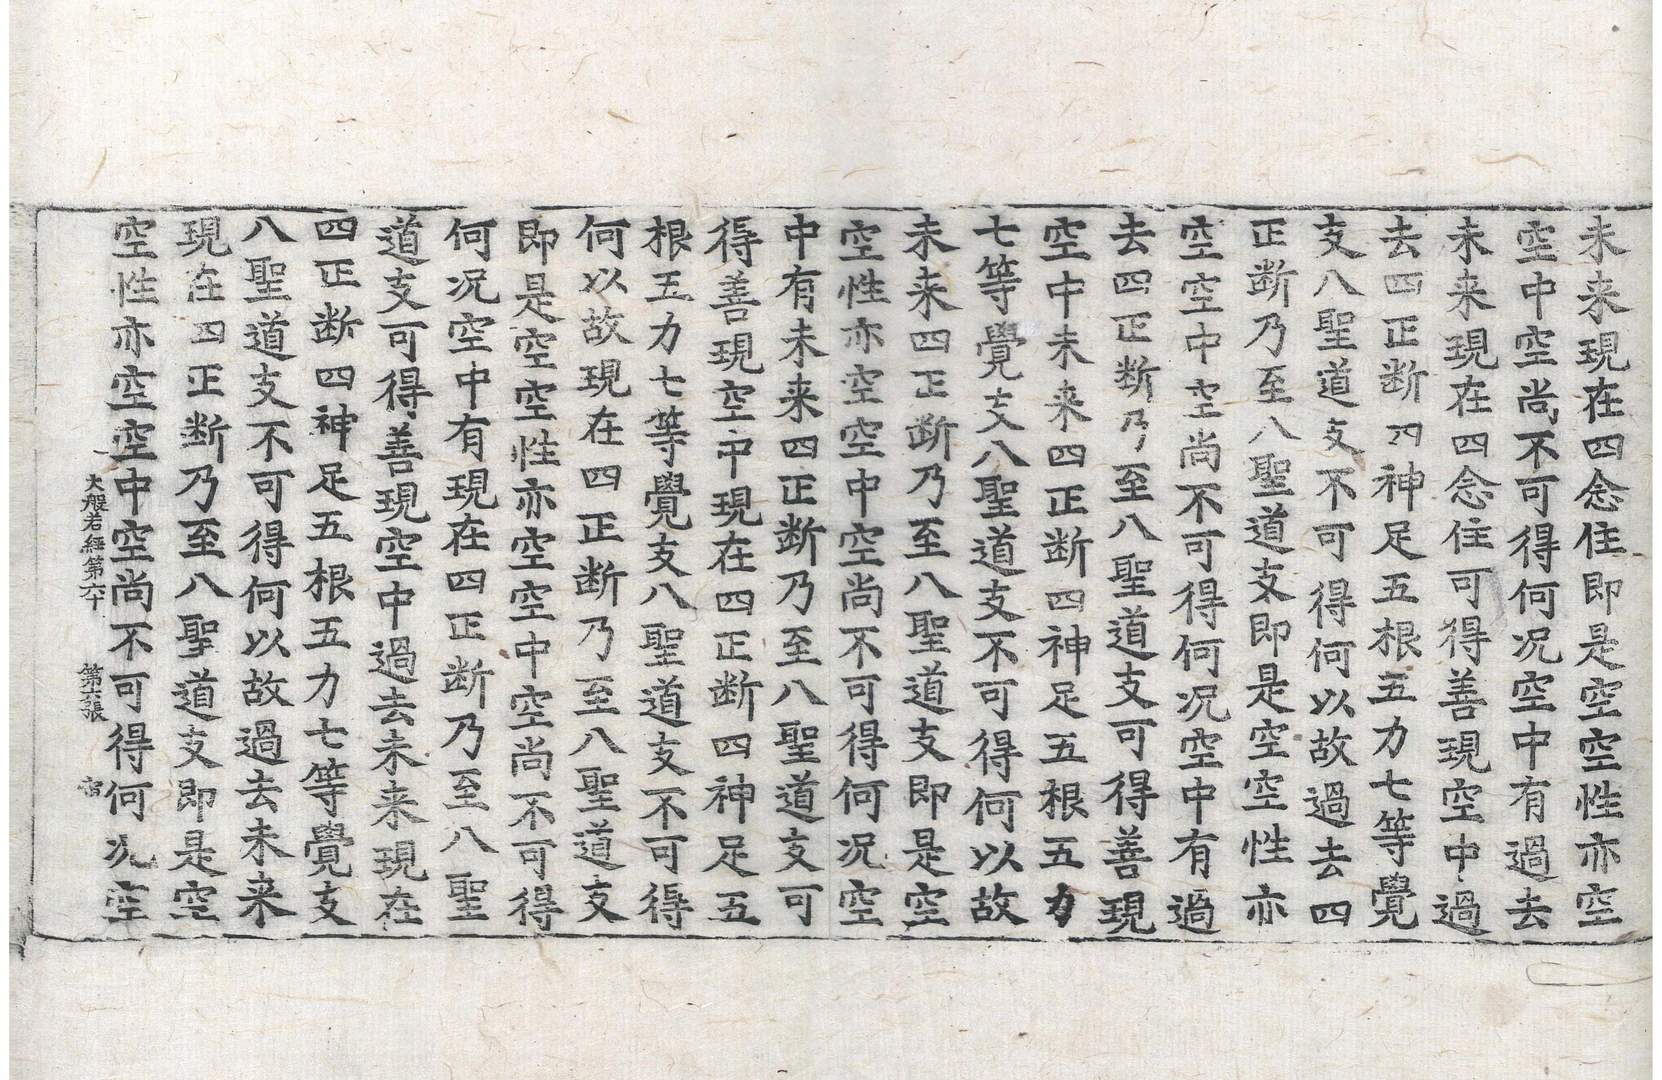 未来現在四念住即是空空性亦空
空中空尚不可得何况空中有過去
未来現在四念住可得善現空中過
去四正断四神足五根五力七等覺
支八聖道支不可得何以故過去四
正断乃至八聖道支即是空空性亦
空空中空尚不可得何况空中有過
去四正断乃至八聖道支可得善現
空中未来四正断四神足五根五力
七等覺支八聖道支不可得何以故
未来四正断乃至八聖道支即是空
空性亦空空中空尚不可得何况空
中有未来四正断乃至八聖道支可
得善現空中現在四正断四神足五
根五力七等覺支八聖道支不可得
何以故現在四正断乃至八聖道支
即是空空性亦空空中空尚不可得
何况空中有現在四正断乃至八聖
道支可得善現空中過去未来現在
四正断四神足五根五力七等覺支
八聖道支不可得何以故過去未来
現在四正断乃至八聖道支即是空
空性亦空空中空尚不可得何况空
大般若經第六十 第六張 宙